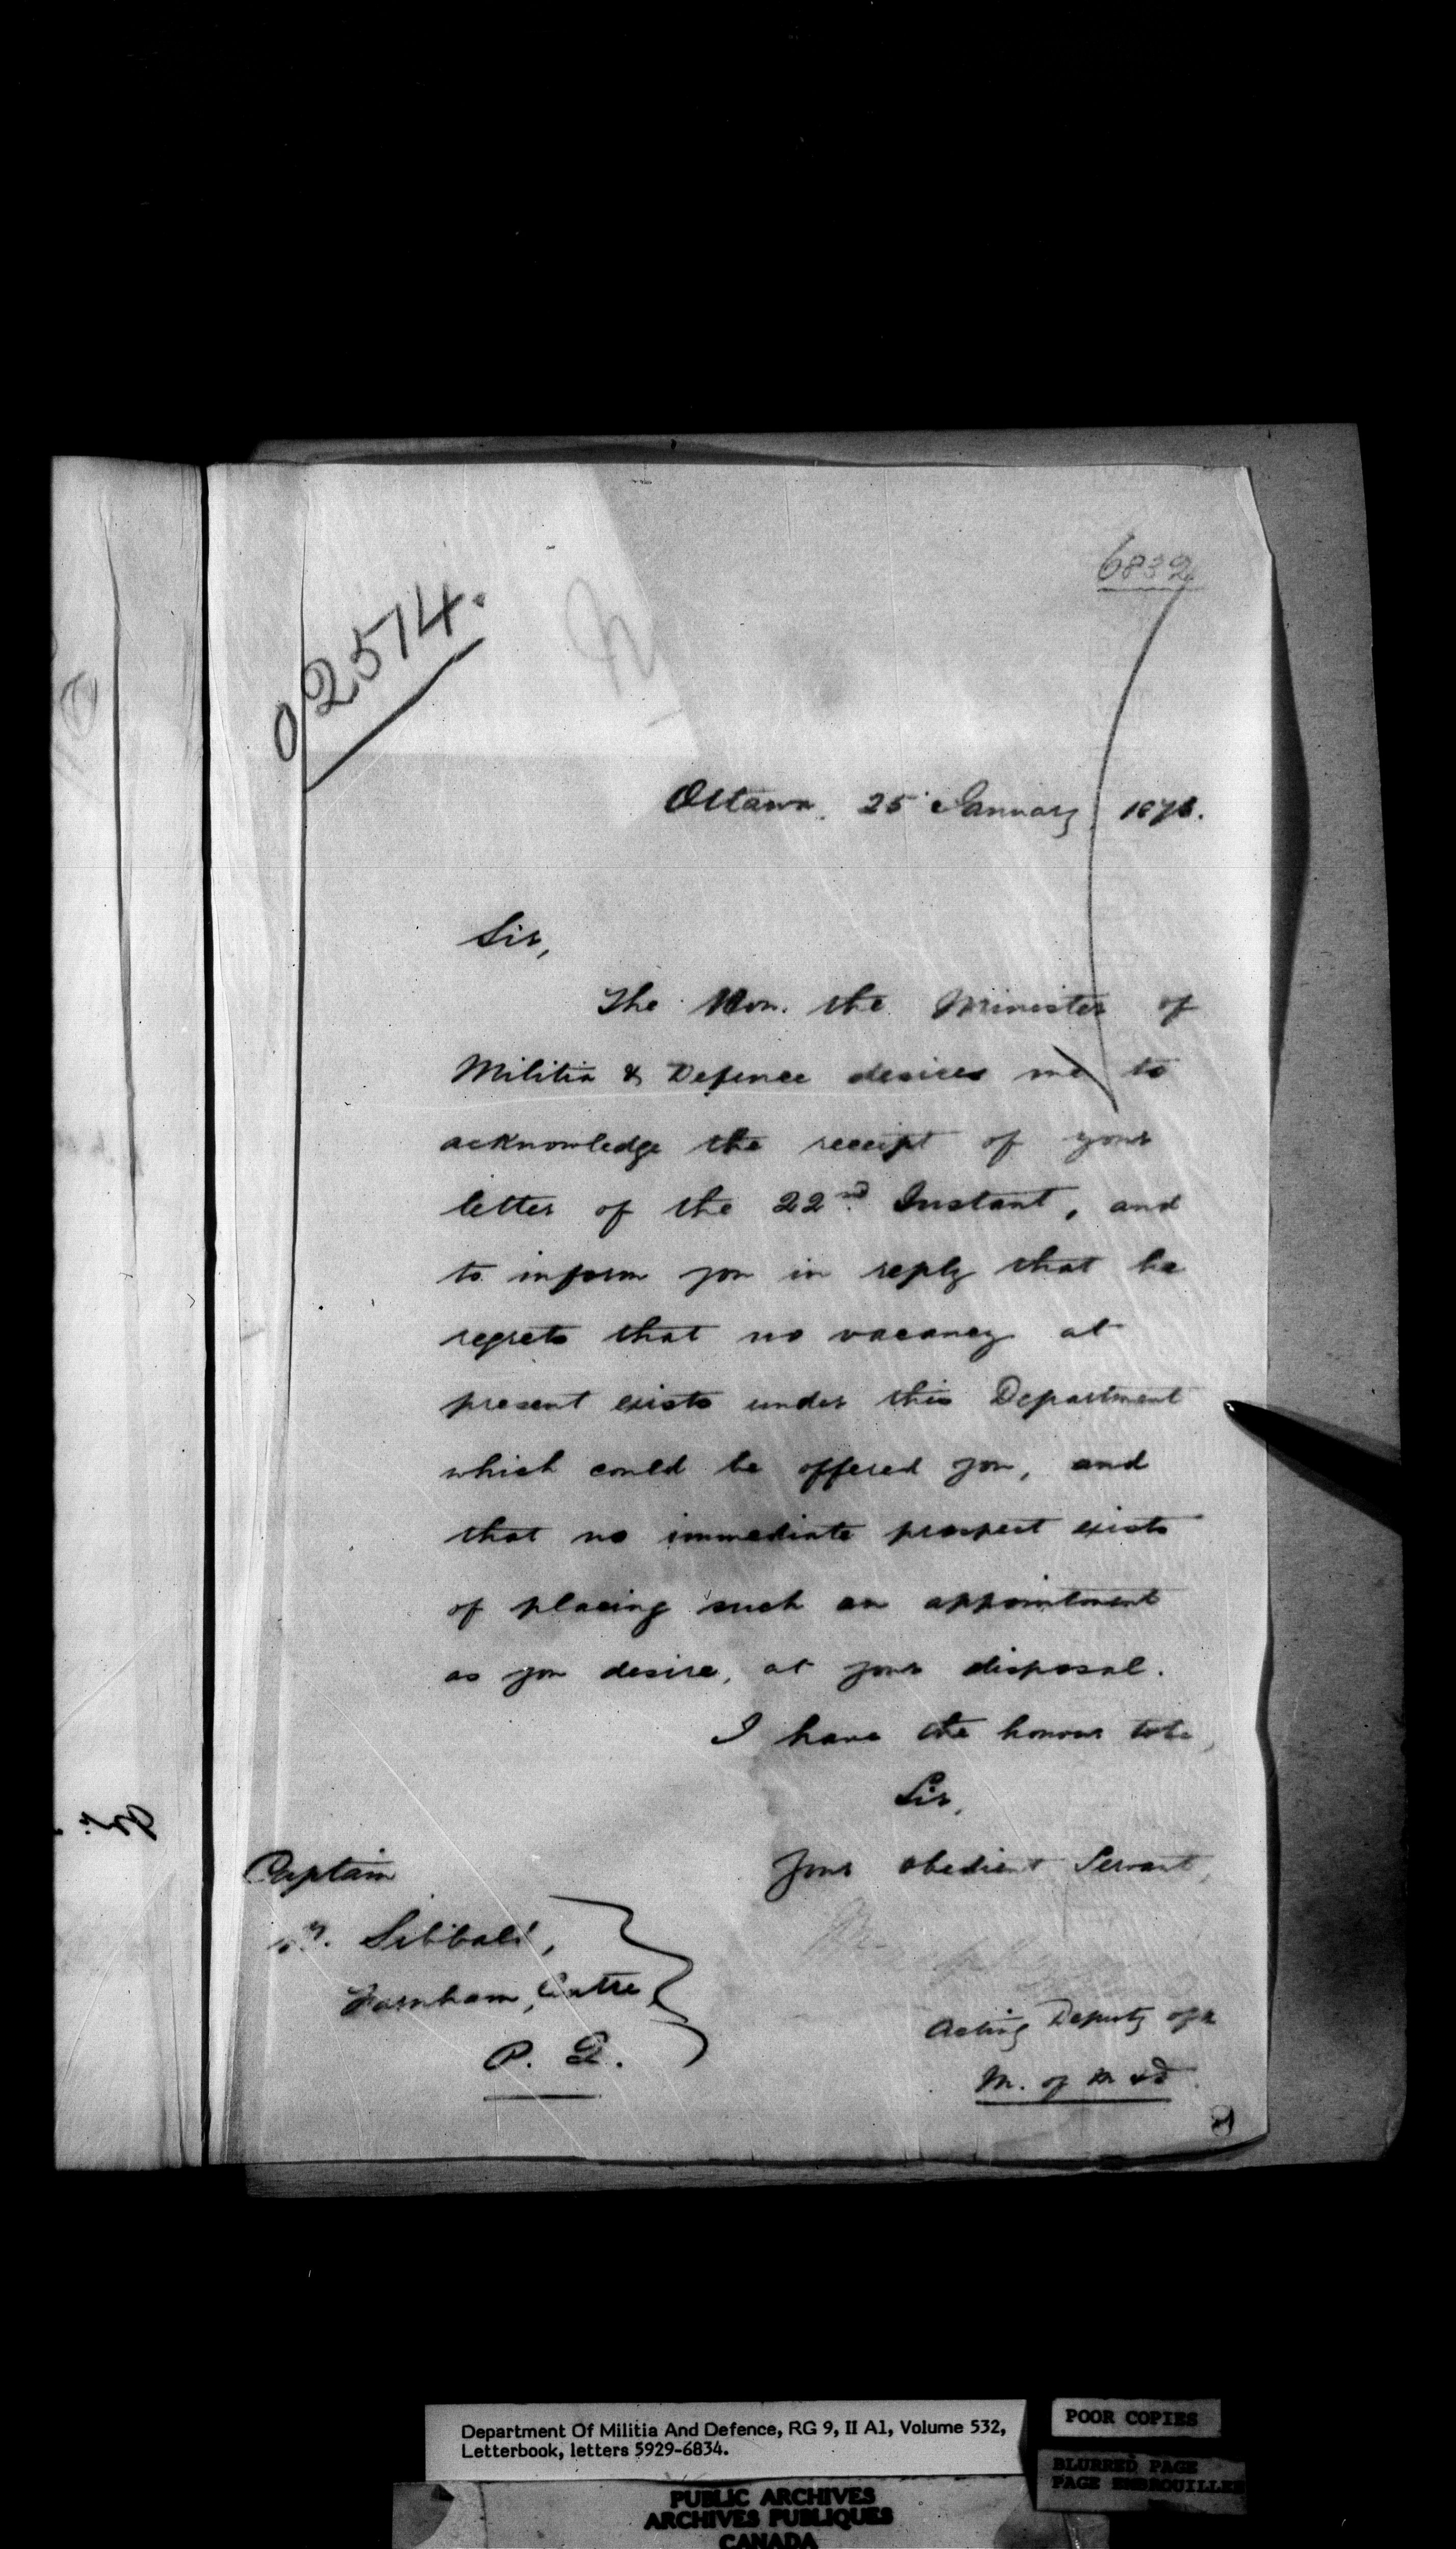 6832
02574.
Ottawa. 25 January 1878.
Sir,
The Hon. the Minister of
Militia & Defence desires me to
acknowledge the receipt of your
letter of the 22nd. Instant, and
to inform you in reply that he
regrets that no vacancy at
present exists under this Department
which could be offered you, and
that no immediate prospect exists
of placing such an appointment
as you desire, at your disposal.
I have the honour to be,
Sir,
Your obedient Servant,
Captain
Sibbald,
Farnham, Centre
P. Q.
Acting Deputy of
M. of M & D
Department Of Militia And Defence, RG 9, II A1, Volume 532,
Letterbook, letters 5929-6834.
POOR COPIES
BLURRED PAGE
PAGE EMBROUILLEE
PUBLIC ARCHIVES
ARCHIVES PUBLIQUES
CANADA